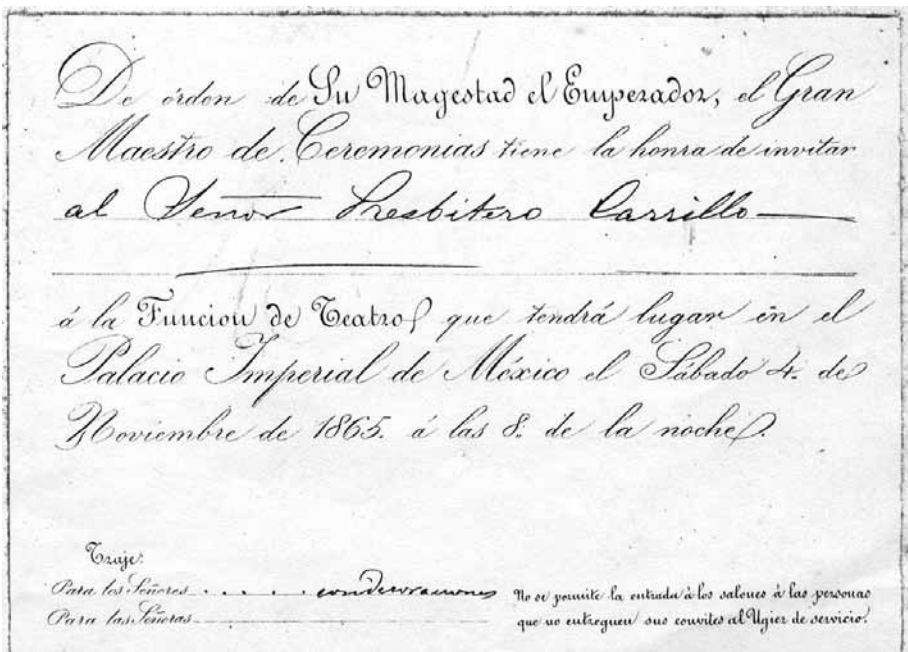 De órden de Su Magestad el Emperador, el Gran
Maestro de Ceremonias tiene la honra de invitar
al Señor Presbitero Carrillo
á la Funcion de Teatro que tendrá lugar en el
Palacio Imperial de México el Sábado 4. de
Noviembre de 1865. á las 8. de la noche.
Traje.
Para los Señores . . . . . condecoraciones
Para las Señoras
No se permite la entrada à los salones à las personas
que no entreguen sus convites al Ugier de servicio.